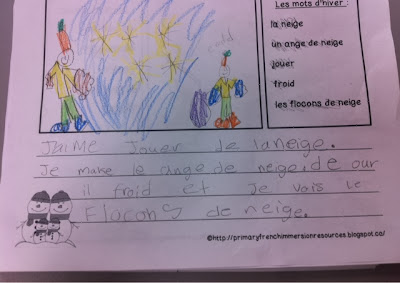 Les mots d'hiver :
la neige
un ange de neige
jouer
froid
les flocons de neige
cold
J'aime Jouer de laneige.
Je make le ange de neige, de our
il froid et je vois le
Flocons de neige.
©http://primaryfrenchimmersionresources.blogspot.ca/